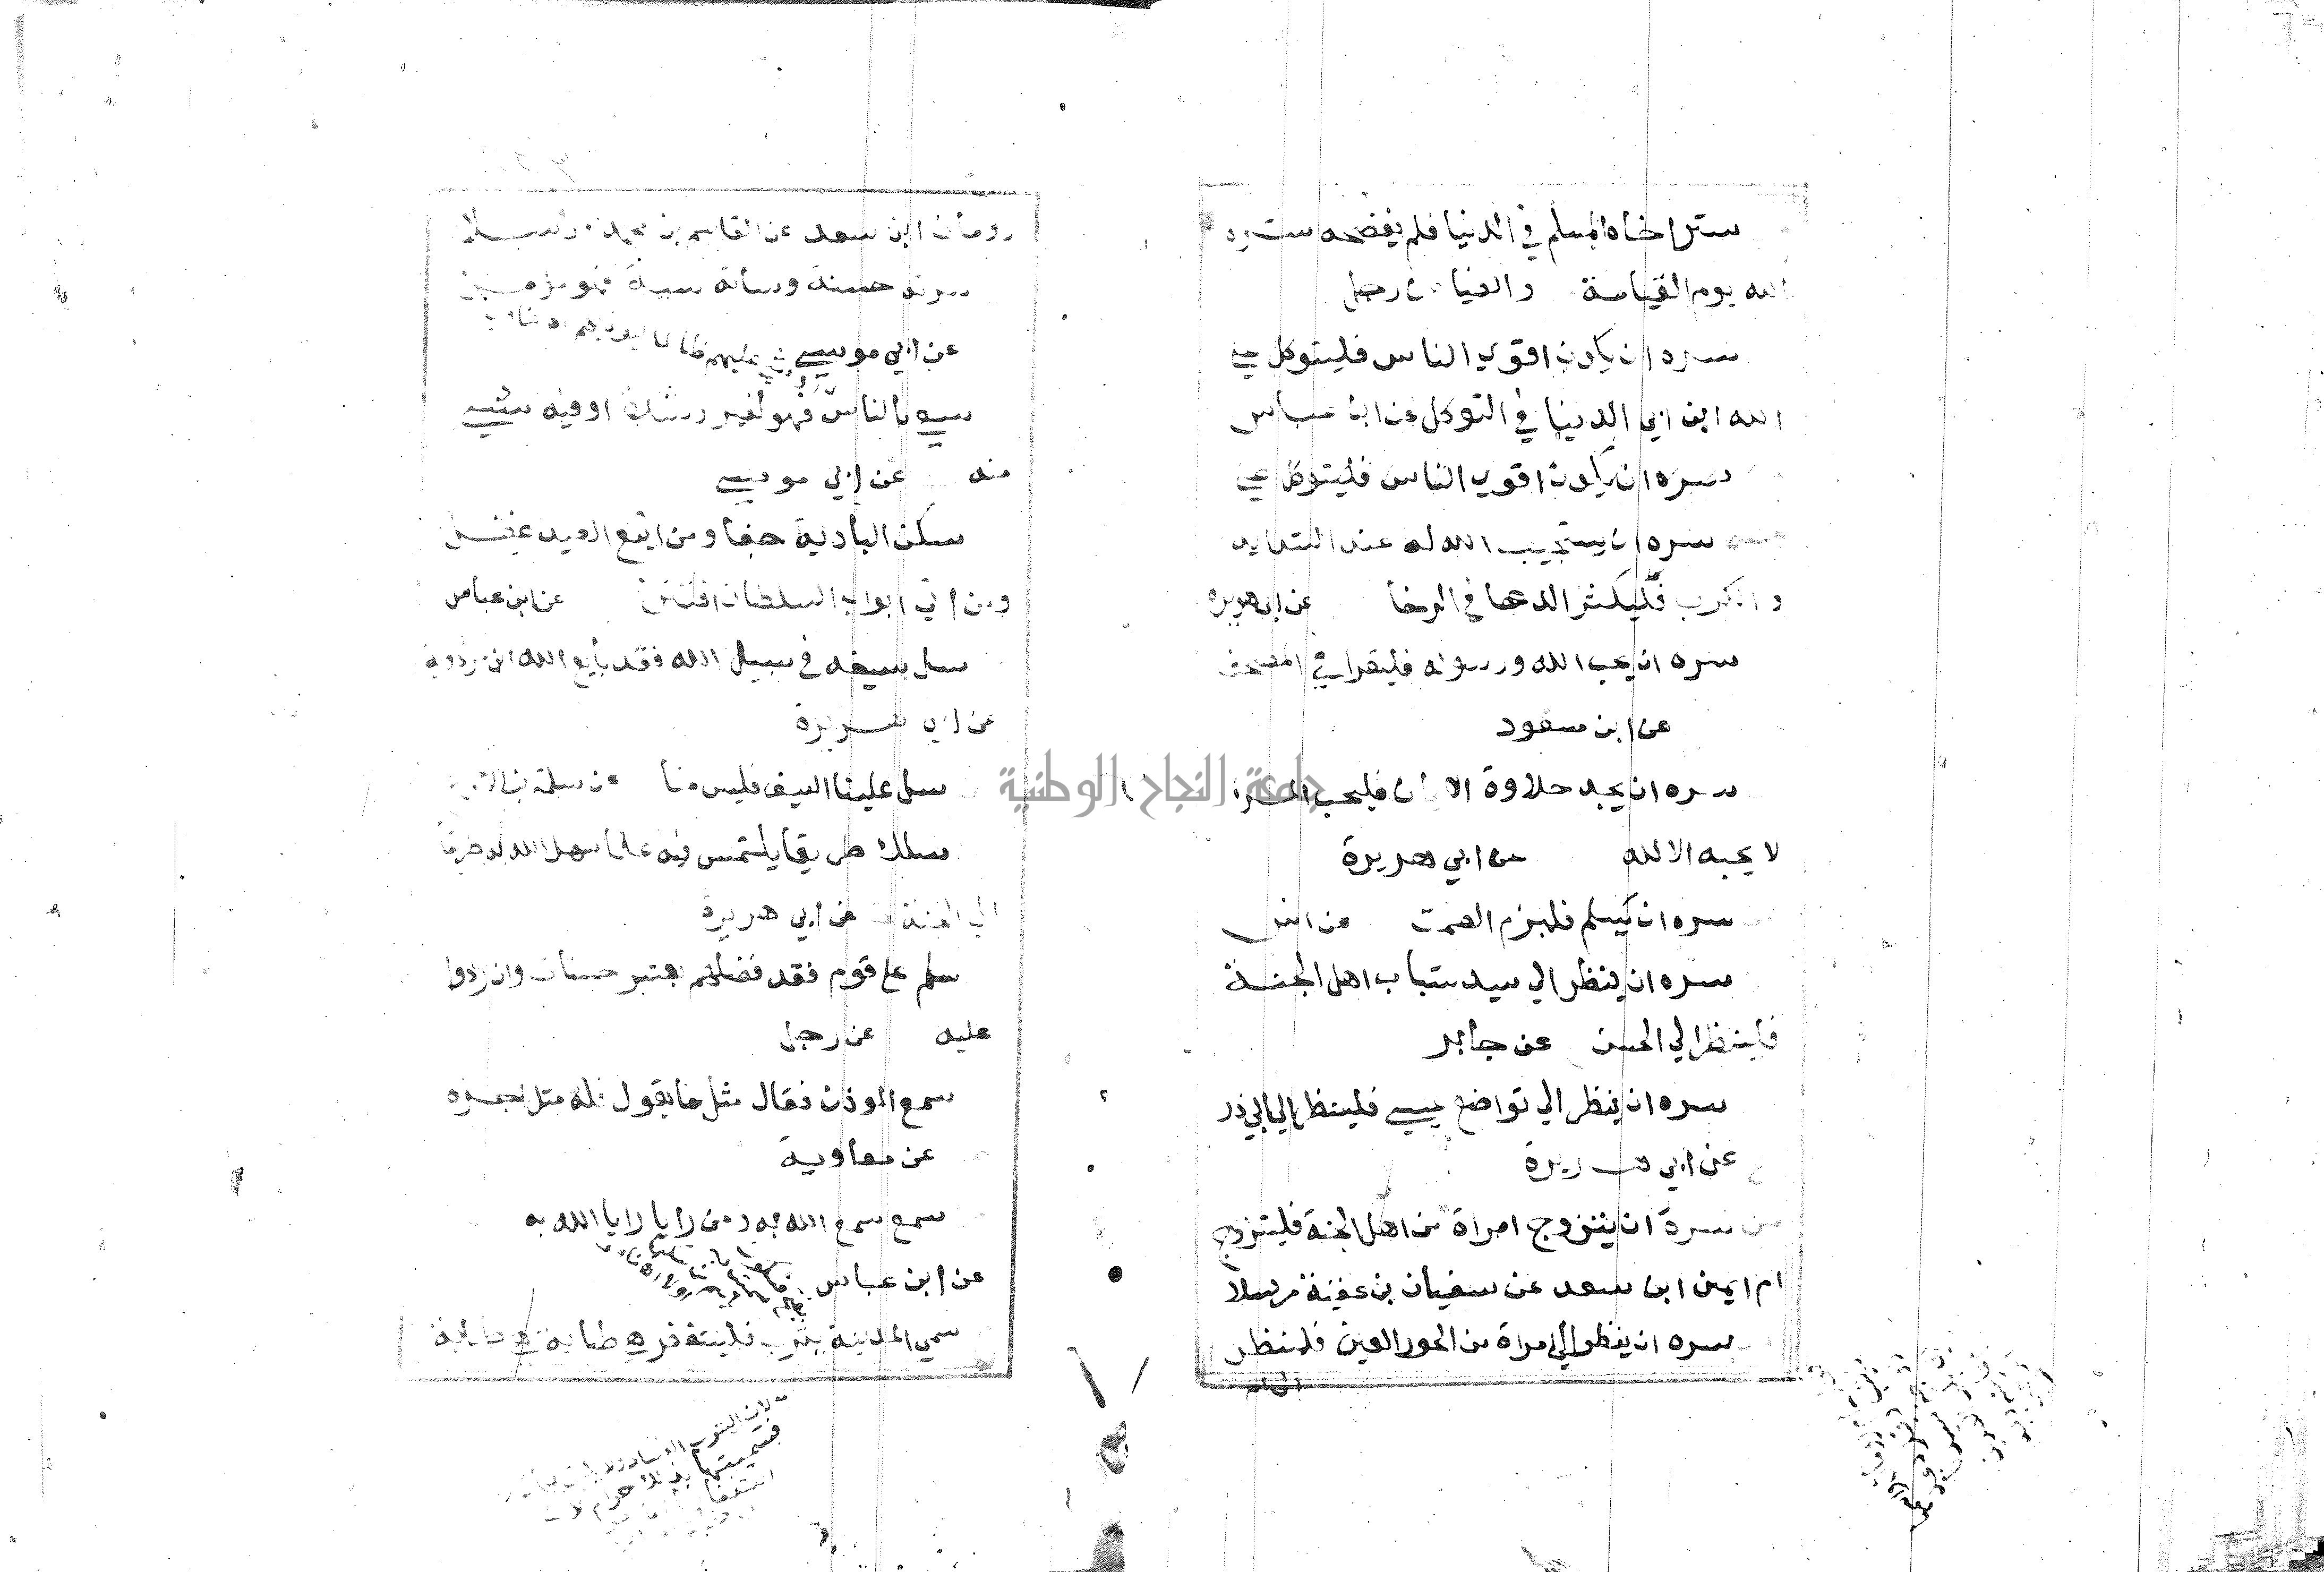 ستر اخاه المسلم في الدنيا فلم يفضحه ستره
الله يوم القيامة رجل
سره ان يكون اقوي الناس فليتوكل علي
الله ابن ابي الدنيا في التوكل عن ابن عباس
سره ان يكون اقوي الناس فليتوكل علي
سره ان يستجيب الله له عند الشدايد
والكرب فليكثر الدعا في الرخا عن ابي هريرة
سره ان يحب الله ورسوله فليقرا في المصحف
عن ابن مسعود
سره ان يجد حلاوة الايمان فليحب المرء
لا يحبه الا لله عن ابي هريرة
سره ان يسلم فليلزم الصمت عن انس
سره ان ينظر الي سيد شباب اهل الجنة
فلينظر الي الحسن عن جابر
سره ان ينظر الي تواضع عيسي فلينظر الي ابي ذر
عن ابي هريرة
من سرة ان يتزوج امراة من اهل الجنة فليتزوج
ام ايمن ابن سعد عن سفيان بن عقبة مرسلا
سره ان ينظر الي امراة من الحور العين فلينظر
الي ام
رومان ابن سعد عن القاسم بن محمد مرسلا
سرته حسنة وساته سية فهو مومن
عن ابي موسي
بالناس فهو لغير رشدة او فيه شي
منه عن ابي موسي
سكن البادية جفا ومن اتبع الصيد غفل
ومن اتي ابواب السلطان افتتن عن ابن عباس
سل سيفه في سبيل الله فقد بايع الله ابن مردوية
عن ابي هريرة
سل علينا السيف فليس منا عن سلمة بن الاكوع
سلك طريقا يلتمس فيه علما سهل الله له طريقا
الي الجنة عن ابي هريرة
سلم علي قوم فقد فضلهم بعشر حسنات وان ردوا
عليه عن رجل
سمع الموذن فقال مثل ما يقول فله مثل اجره
عن معاوية
سمع سمع الله به ومن رايا رايا الله به
عن ابن عباس
سمي المدينة يثرب فليستغفر هي طابة هي طابة
جامعة النجاح الوطنية